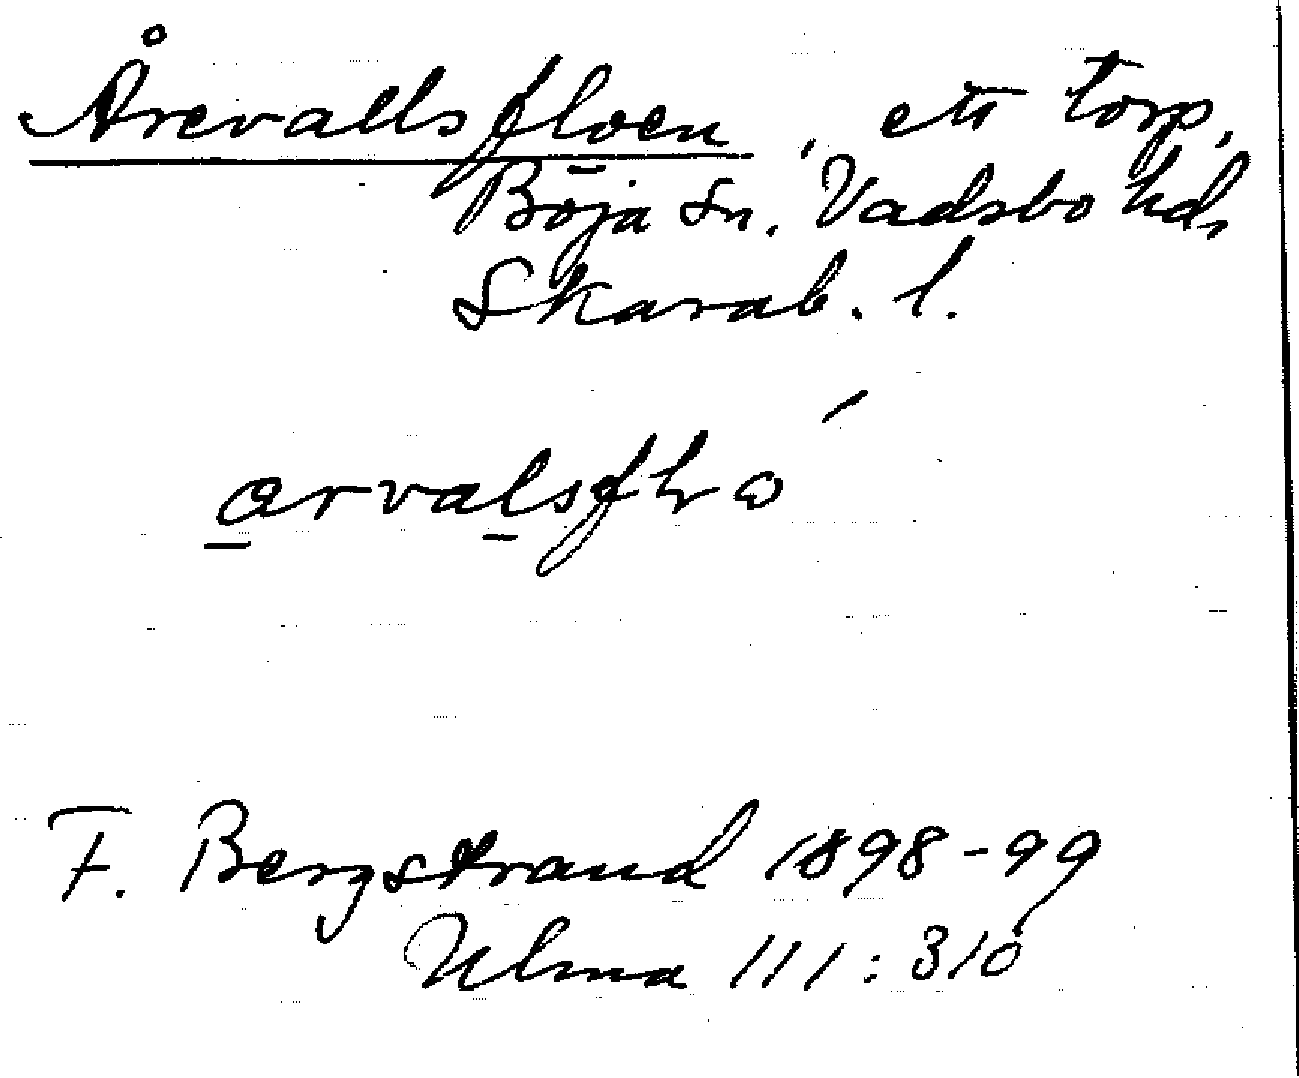 Årevallsfloen, ett torp,
Böja sn. Vadsbo hd,
Skarab. l.
arvalsflo
F. Bergstrand 1898-99
Ulma 111:310